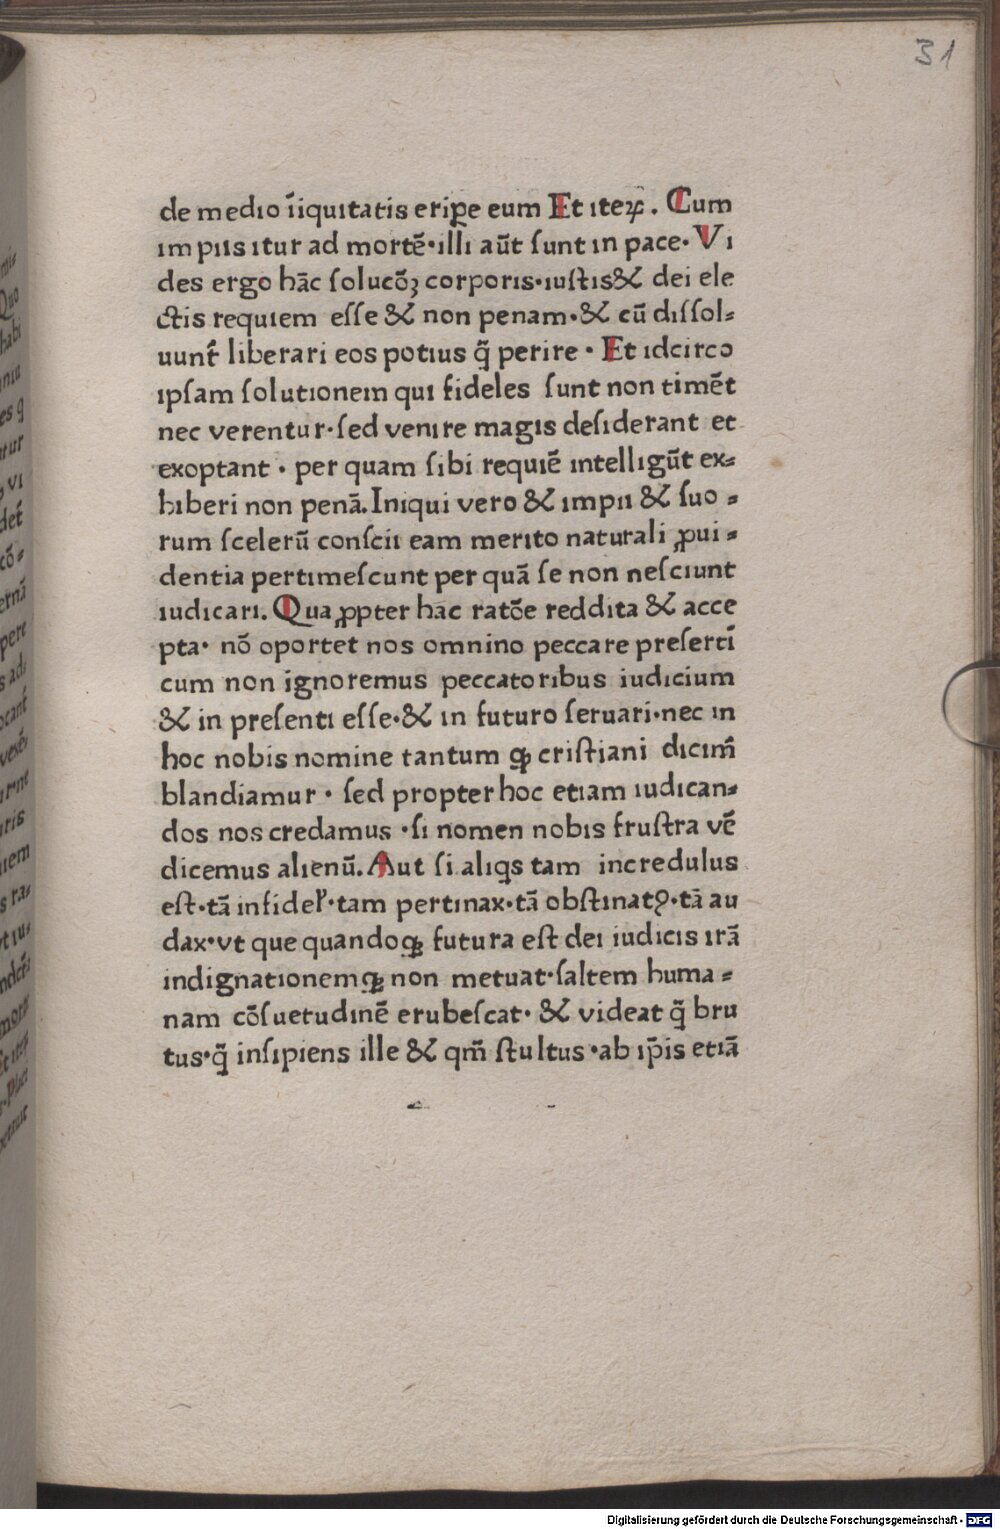 31
de medio īiquitatis eripe eum Et iteꝝ. Cum
impiis itur ad mortē·illi aūt sunt in pace·Vi
des ergo hāc solucōꝫ corporis·iustis& dei ele
ctis requiem esse & non penam·& cū dissol⸗
uunt̄ liberari eos potius q̄ perire · Et idcirco
ipsam solutionem qui fideles sunt non timēt
nec verentur·sed venire magis desiderant et
exoptant · per quam sibi requiē intelligūt ex⸗
hiberi non penā.Iniqui vero & impii & suo ⸗
rum scelerū conscii eam merito naturali ꝓui ⸗
dentia pertimescunt per quā se non nesciunt
iudicari. Quaꝓpter hāc ratōe reddita & acce
pta· nō oportet nos omnino peccare presertī
cum non ignoremus peccatoribus iudicium
& in presenti esse·& in futuro seruari·nec in
hoc nobis nomine tantum ꝙ cristiani dicim̄
blandiamur · sed propter hoc etiam iudican⸗
dos nos credamus ·si nomen nobis frustra vē
dicemus alienū.Aut si aliqs tam incredulus
est·tā infidel̓·tam pertinax·tā obstinatꝰ·tā au
dax·vt que quandoꝙ futura est dei iudicis irā
indignationemꝙ non metuat·saltem huma ⸗
nam cōsuetudinē erubescat· & videat q̄ bru
tus·q̄ insipiens ille & qm̄ stultus ·ab ip̄is etiā
Digitalisierung gefördert durch die Deutsche Forschungsgemeinschaft - DFG